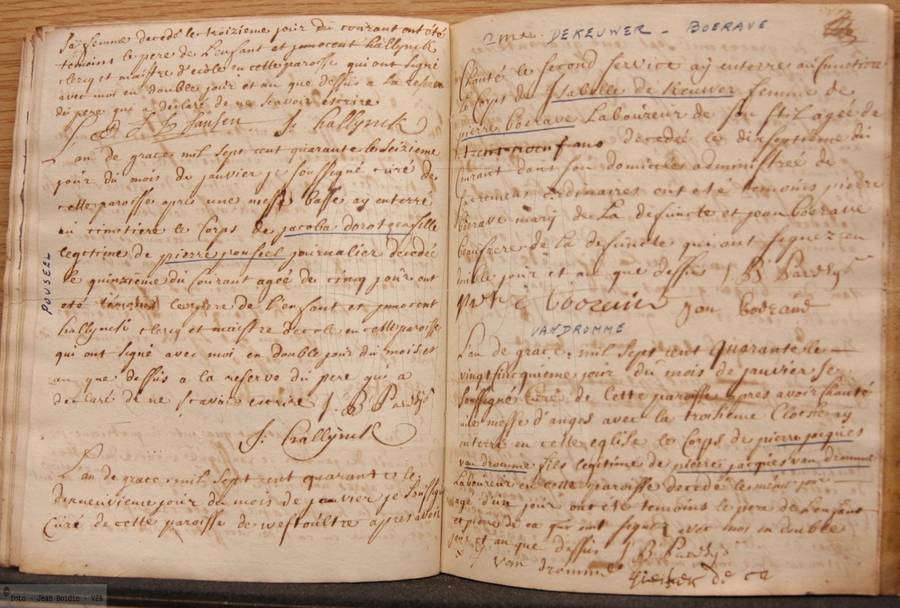 sa femme decedé le troizieme jour du courant ont été
temoins le pere de l'enfant et innocent hallynck
clercq et maistre d'ecole en cette paroisse qui ont signé
avec moi en double jour et an que dessus a la reserve
du pere qui a declaré de ne scavoir escrire
J. hallynck
L'an de grace mil sept cent quarante le seizieme
jour du mois de janvier je soussigné curé de
cette paroisse apres une messe basse ay enterré
au cimetiere le corps de jacoba dorothea fille
legitime de pierre pousseel journalier decedé
le quinzieme du courant agée de cinq jour ont
été temoins le pere de l'enfant et innocent
hallynck clercq et maistre decole en cette paroisse
qui ont signé avec moi en double jour du mois et
an que dessus a la reserve du pere qui a
declaré de ne scavoir escrire J. B.
J. hallynck
L'an de grace mil sept cent quarante le
dixneuvieme jour du mois de janvier je soussigné
Curé de cette paroisse de westoultre apres avoir
POUSEEL
2me DEKEUWER - BOERAVE
Chanté le second service ay enterre au cimetiere
le corps de Isabelle de keuwer femme de
pierre boerave Laboureur de son stil agée de
decedé le dixseptieme du
Courant dans son domicile administrée de
sacremens ordinaires ont eté temoins pierre
boerave mary de La defuncte et jean boerave
beaufrere de la defuncte qui ont signez en
double jour et an que dessus J B
jan boerave
VANDROMME
L'an de grace mil sept cent quarante le
vingt cincquieme jour du mois de janvier je
soussigné Curé de cette paroisse apres avoir chanté
une messe d'anges avec la troisieme Cloche ay
enterré en cette eglise le corps de pierre jacques
van dromme fils legitime de pierre jacques van dromme
Laboureur en cette paroisse decedé le même jour
agé d'un jour ont eté temoins le pere de l'enfant
et qui ont signez avec moi en double
jour et an que dessus J B
van dromme
© foto - Jean Boidin - VVF